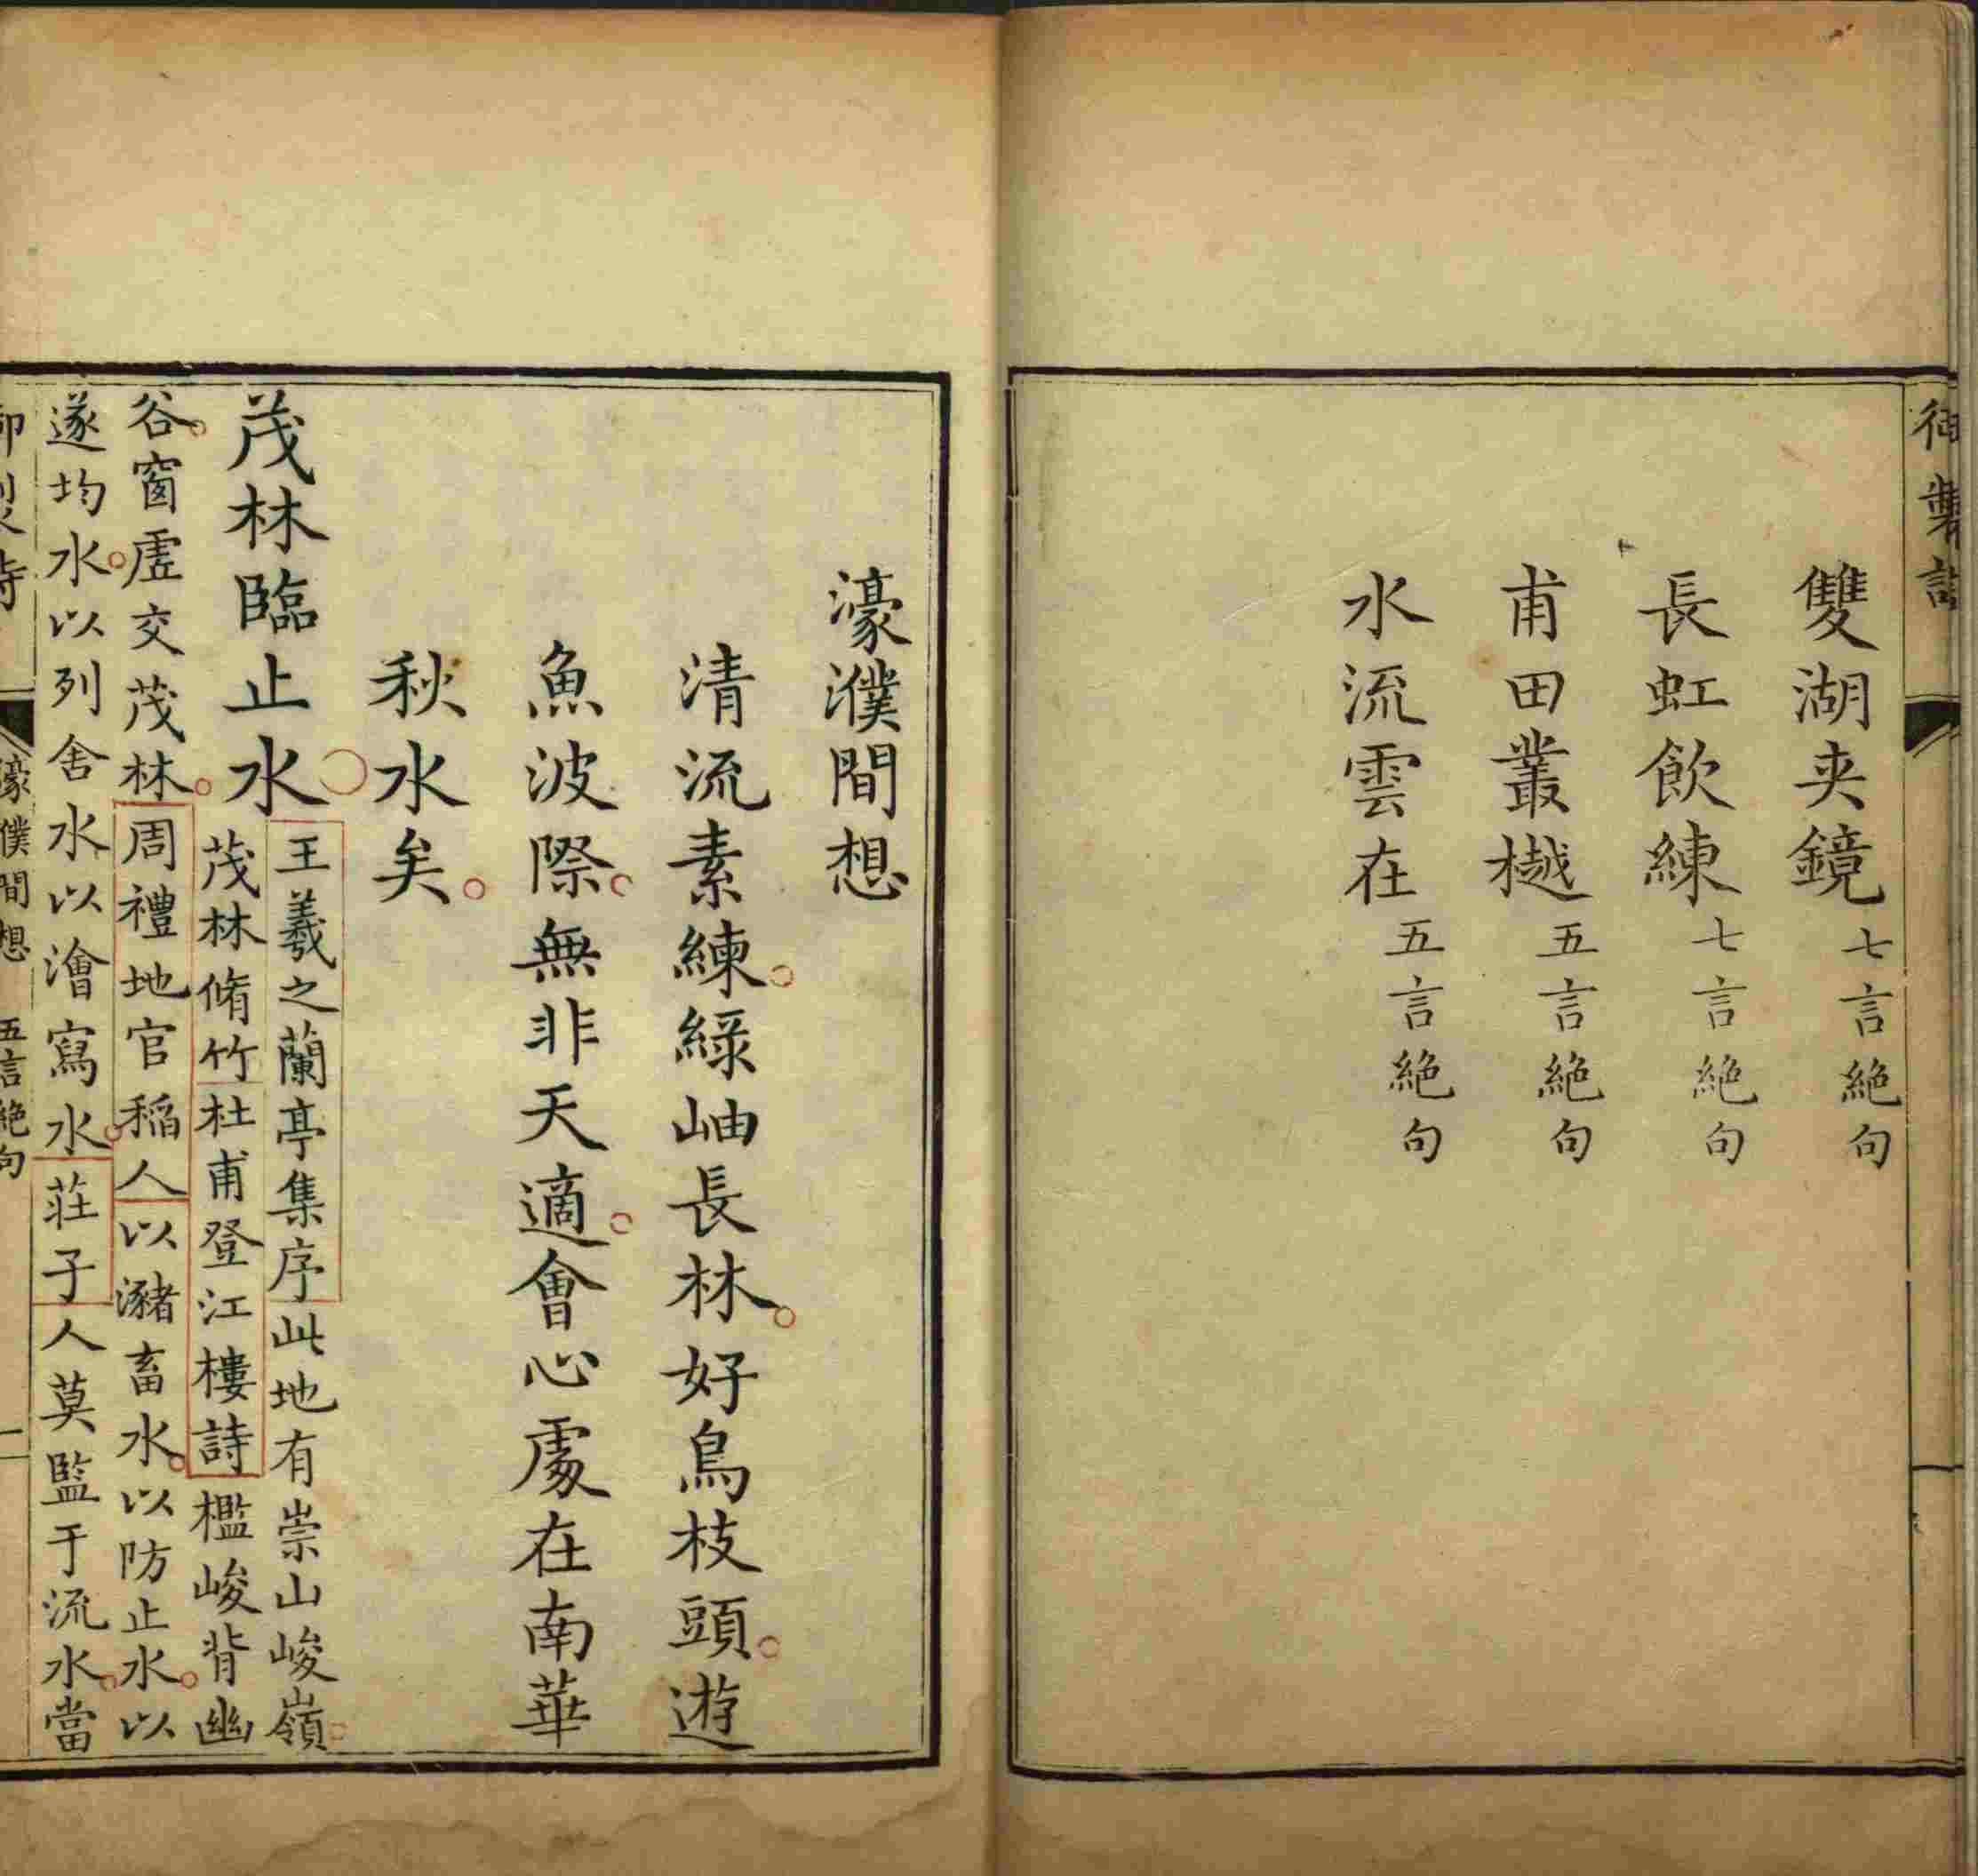 御製詩
雙湖夾鏡七言絶句
長虹飲練七言絶句
甫田叢樾五言絶句
水流雲在五言絶句
濠濮間想
清流素練綠岫長林好鳥枝頭遊
魚波際無非天適會心處在南華
秋水矣
茂林臨止水
王羲之蘭亭集序此地有崇山峻嶺
茂林脩竹杜甫登江樓詩檻峻背幽
谷窗虛交茂林周禮地官稻人以瀦畜水以防止水以
遂均水以列舍水以澮寫水莊子人莫監于流水當
御製詩
濠濮間想 五言絶句